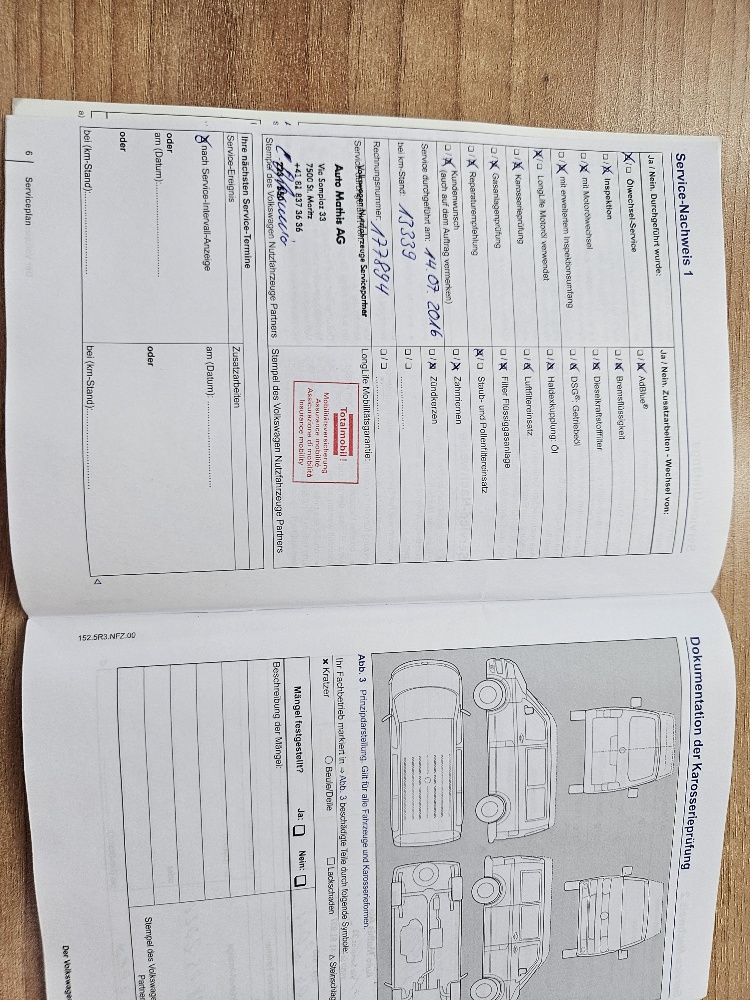 Service-Nachweis 1
Ja / Nein. Durchgeführt wurde:
Ölwechsel-Service
Inspektion
mit Motorölwechsel
mit erweitertem Inspektionsumfang
LongLife Motoröl verwendet
Karosserieprüfung
Gasanlagenprüfung
Reparaturempfehlung
Kundenwunsch
(auch auf dem Auftrag vermerken)
Service durchgeführt am: 14.07.2016
bei km-Stand: 13339
Rechnungsnummer: 177894
Volkswagen Nutzfahrzeuge Servicepartner
Auto Mathis AG
Via Somplaz 33
7500 St. Moritz
+41 81 837 36 36
Stempel des Volkswagen Nutzfahrzeuge Partners
Ja / Nein. Zusatzarbeiten - Wechsel von:
AdBlue®
Bremsflüssigkeit
Dieselkraftstofffilter
DSG®- Getriebeöl
Haldexkupplung Öl
Luftfiltereinsatz
Filter Flüssiggasanlage
Staub- und Pollenfiltereinsatz
Zahnriemen
Zündkerzen
LongLife Mobilitätsgarantie:
Totalmobil!
Mobilitätsversicherung
Assurance mobilité
Assicurazione di mobilità
Insurance mobility
Stempel des Volkswagen Nutzfahrzeuge Partners
Ihre nächsten Service-Termine
Service-Ereignis
nach Service-Intervall-Anzeige
oder
am (Datum):
oder
bei (km-Stand):
Zusatzarbeiten
am (Datum):
oder
bei (km-Stand):
6 Serviceplan
Dokumentation der Karosserieprüfung
Abb. 3 Prinzipdarstellung. Gilt für alle Fahrzeuge und Karosserieformen.
Ihr Fachbetrieb markiert in ⇒ Abb. 3 beschädigte Teile durch folgende Symbole:
× Kratzer ○ Beule/Delle □ Lackschaden △ Steinschlag
Mängel festgestellt? Ja: Nein:
Beschreibung der Mängel:
Stempel des Volkswage
Partne
152.5R3.NFZ.00
Der Volkswage